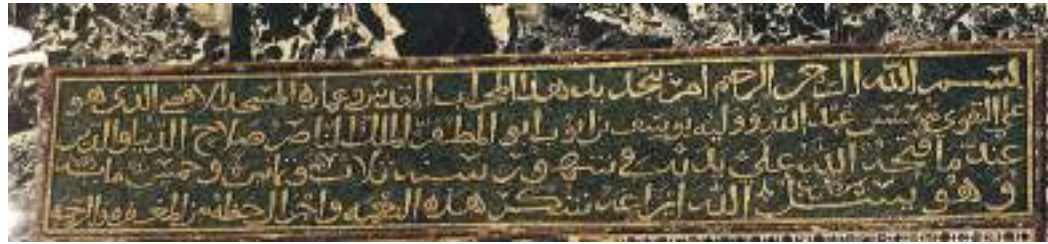 بسم الله الرحمن الرحيم امر بتجديد هذا المحراب المقدس وعمارة المسجد الاقصى الذي هو
على التقوى مؤسس عبد الله ووليه يوسف بن ايوب ابو المظفر الملك الناصر صلاح الدنيا والدين
عندما فتحه الله على يديه في شهور سنة ثلاث وثمانين وخمس مائة
وهو يسئل الله ايزاعه شكر هذه النعمة واجزال حظه من المغفرة والرحمة